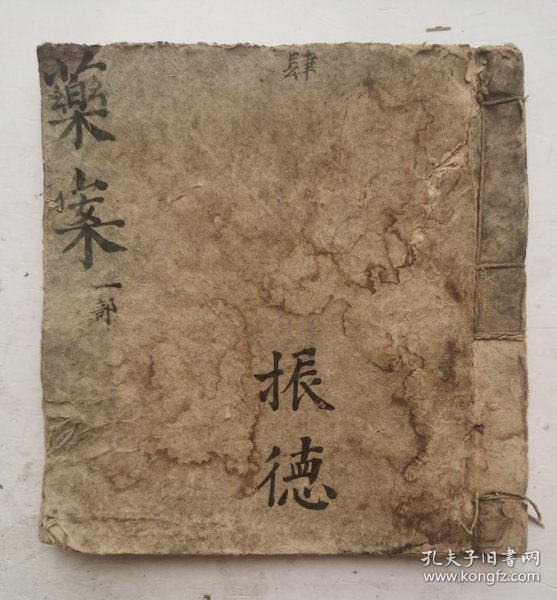 肆
藥案一部
振德
孔夫子旧书网
www.kongfz.com